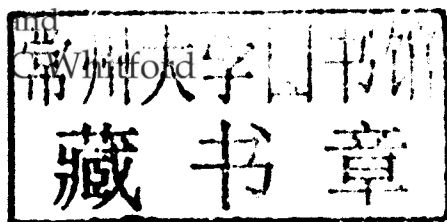 and
C Whitford
常州大学图书馆
藏书章